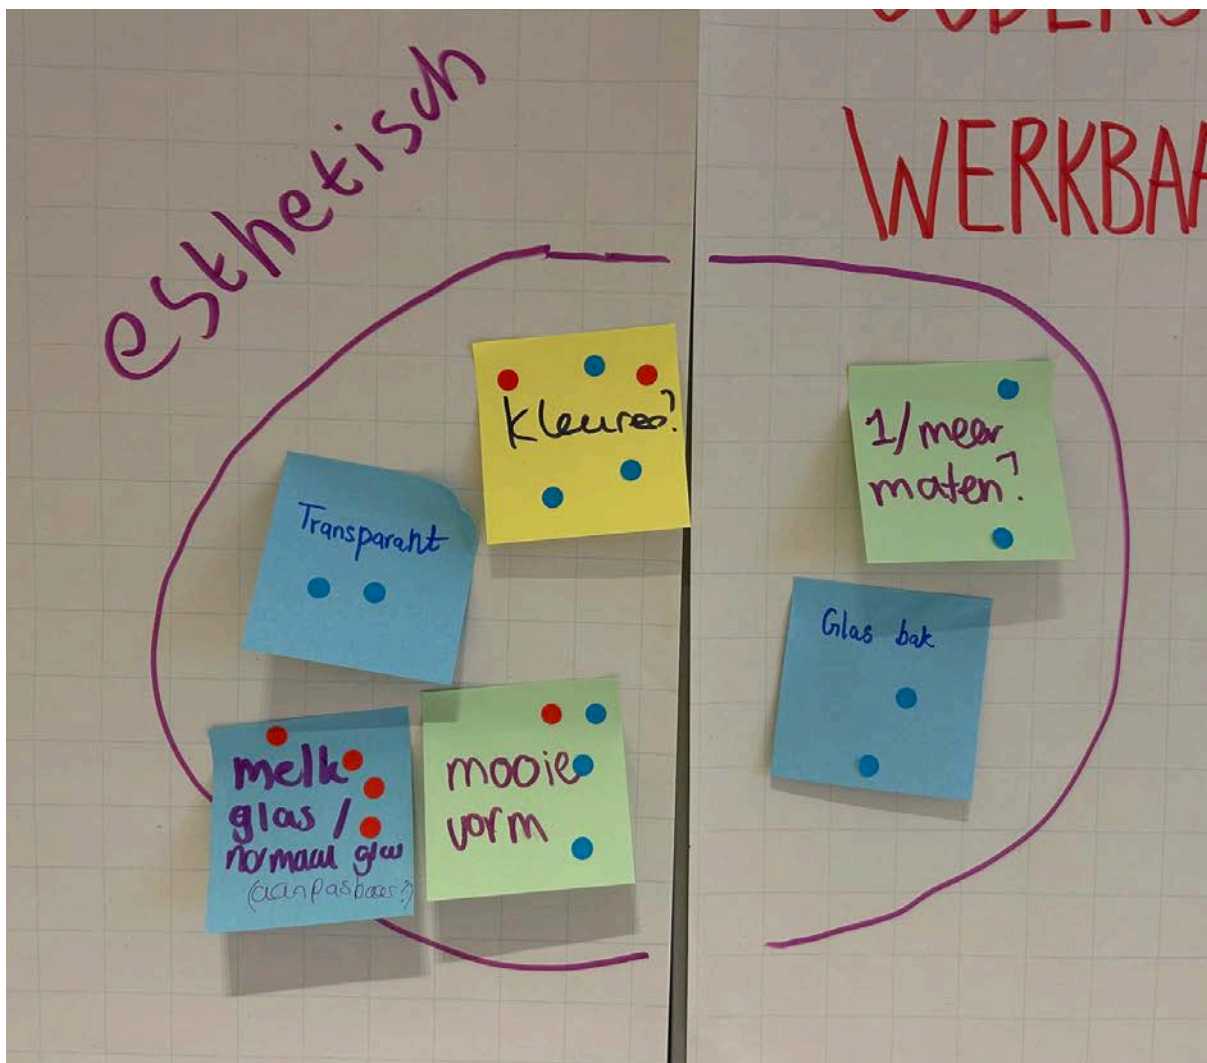 esthetisch
WERKBAA
Kleuren?
1/meer
maten?
Transparant
Glas bak
melk
glas /
normaal glas
(aanpasbaar?)
mooie
vorm